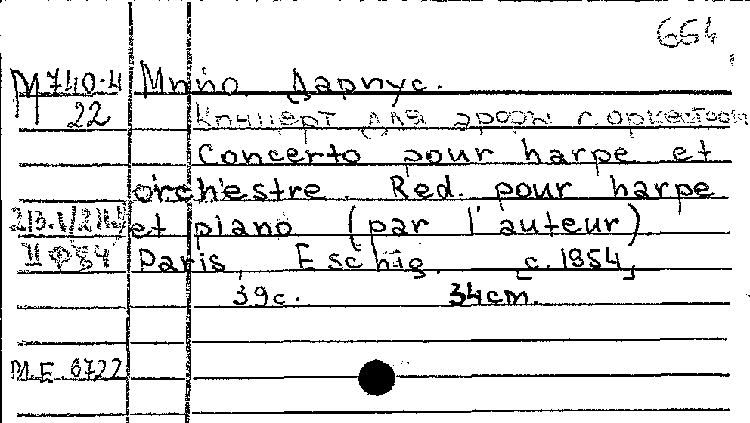 654
М740-4 Мийо Дариус.
22 Концерт для арфы с оркестром
Concerto pour harpe et
orchestre. Red. pour harpe
et piano (par l'auteur)
II ф84 Paris, Eschig. [c. 1954]
39с. 34cm.
M.E. 6722